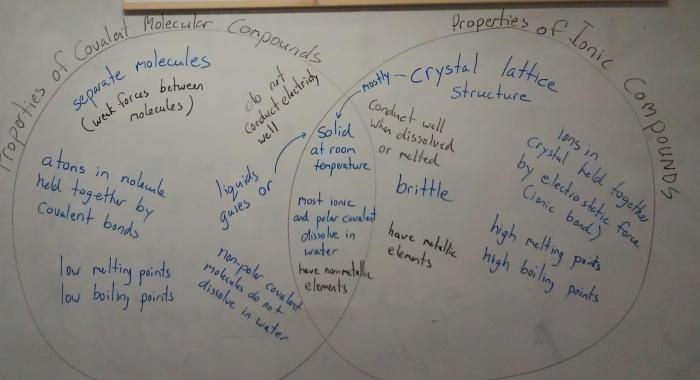 Properties of Covalent Molecular Compounds
separate molecules
(weak forces between
molecules)
do not
conduct electricity
well
atoms in molecule
held together by
Covalent bonds
liquids
gases or
low melting points
low boiling points
non-polar covalent
molecules do not
dissolve in water
solid
at room
temperature
most ionic
and polar covalent
dissolve in
water
have non-metallic
elements
Properties of Ionic Compounds
mostly - crystal lattice
structure
Conduct well
when dissolved
or melted
brittle
have metallic
elements
ions in
crystal held together
by electrostatic force
(ionic bond)
high melting points
high boiling points